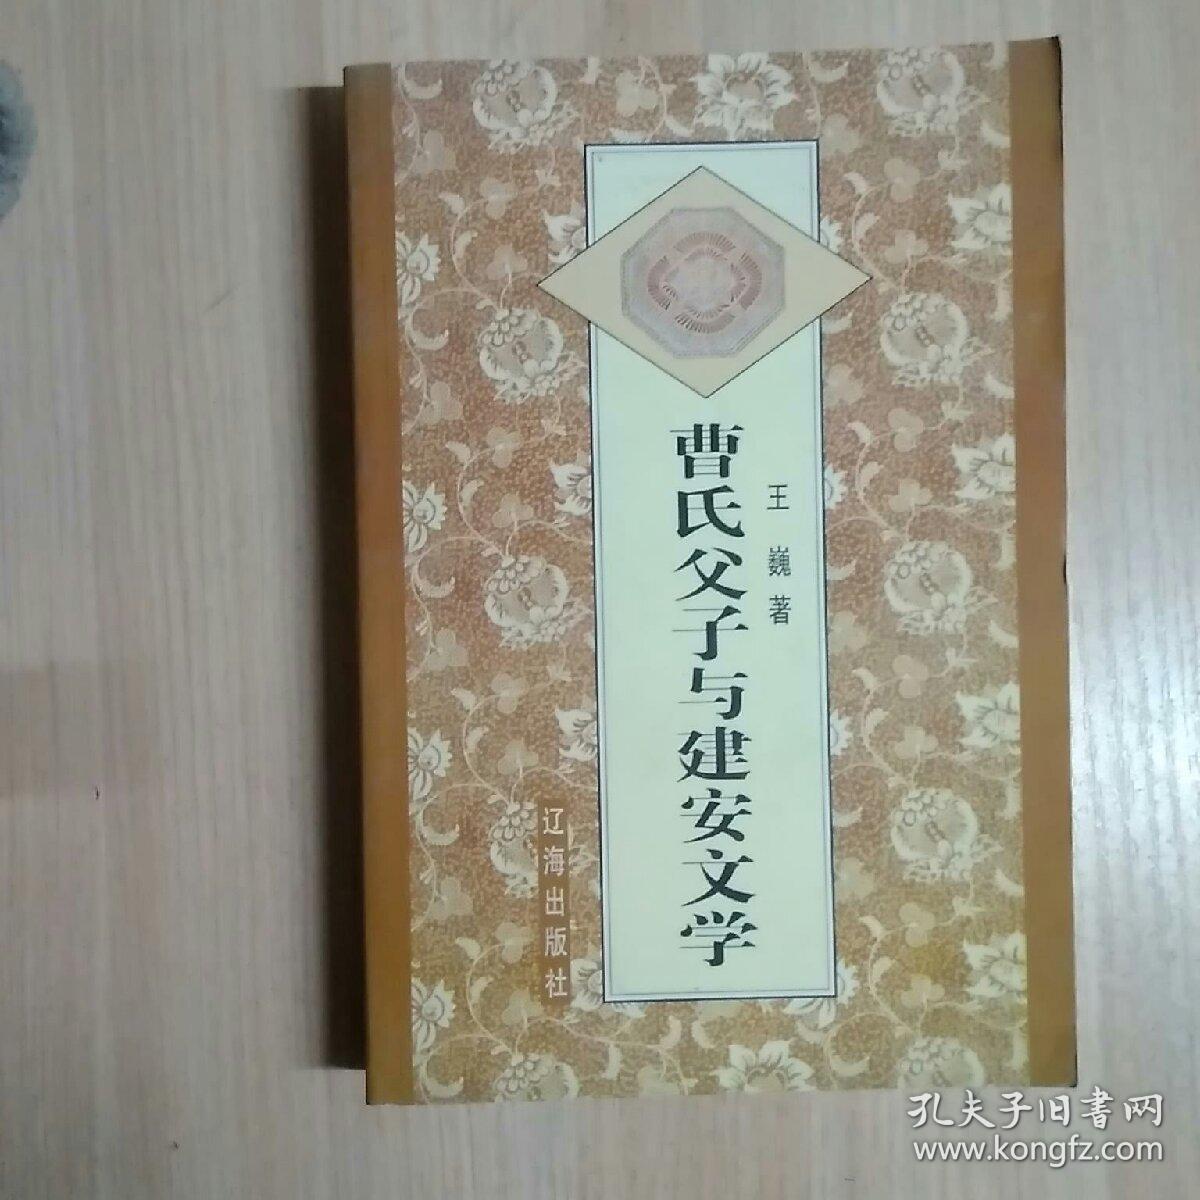 曹氏父子与建安文学
王巍著
辽海出版社
孔夫子旧書网
www.kongfz.com